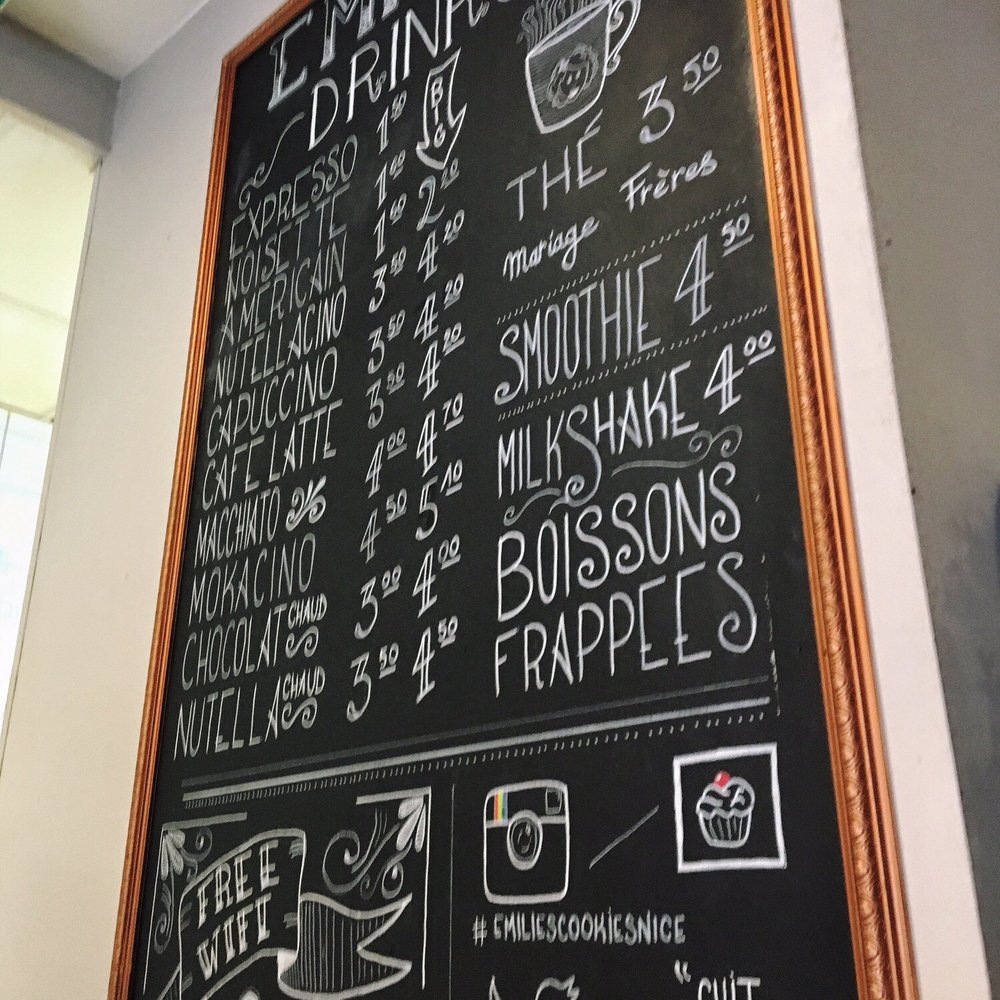 DRINKS
BIG
EXPRESSO 1 50
NOISETTE 1 60
AMERICAIN 1 60 2
NUTELLACINO 3 50 4 20
CAPUCCINO 3 50 4 20
CAFE LATTE 3 50 4 20
MACCHIATO 4 00 4 70
MOKACINO 4 50 5 10
CHOCOLAT CHAUD 3 00 4 00
NUTELLA CHAUD 3 50 4 50
THÉ 3 50
Mariage Frères
SMOOTHIE 4 50
MILKSHAKE 4 00
BOISSONS
FRAPPEES
FREE
WIFI
#EMILIESCOOKIESNICE